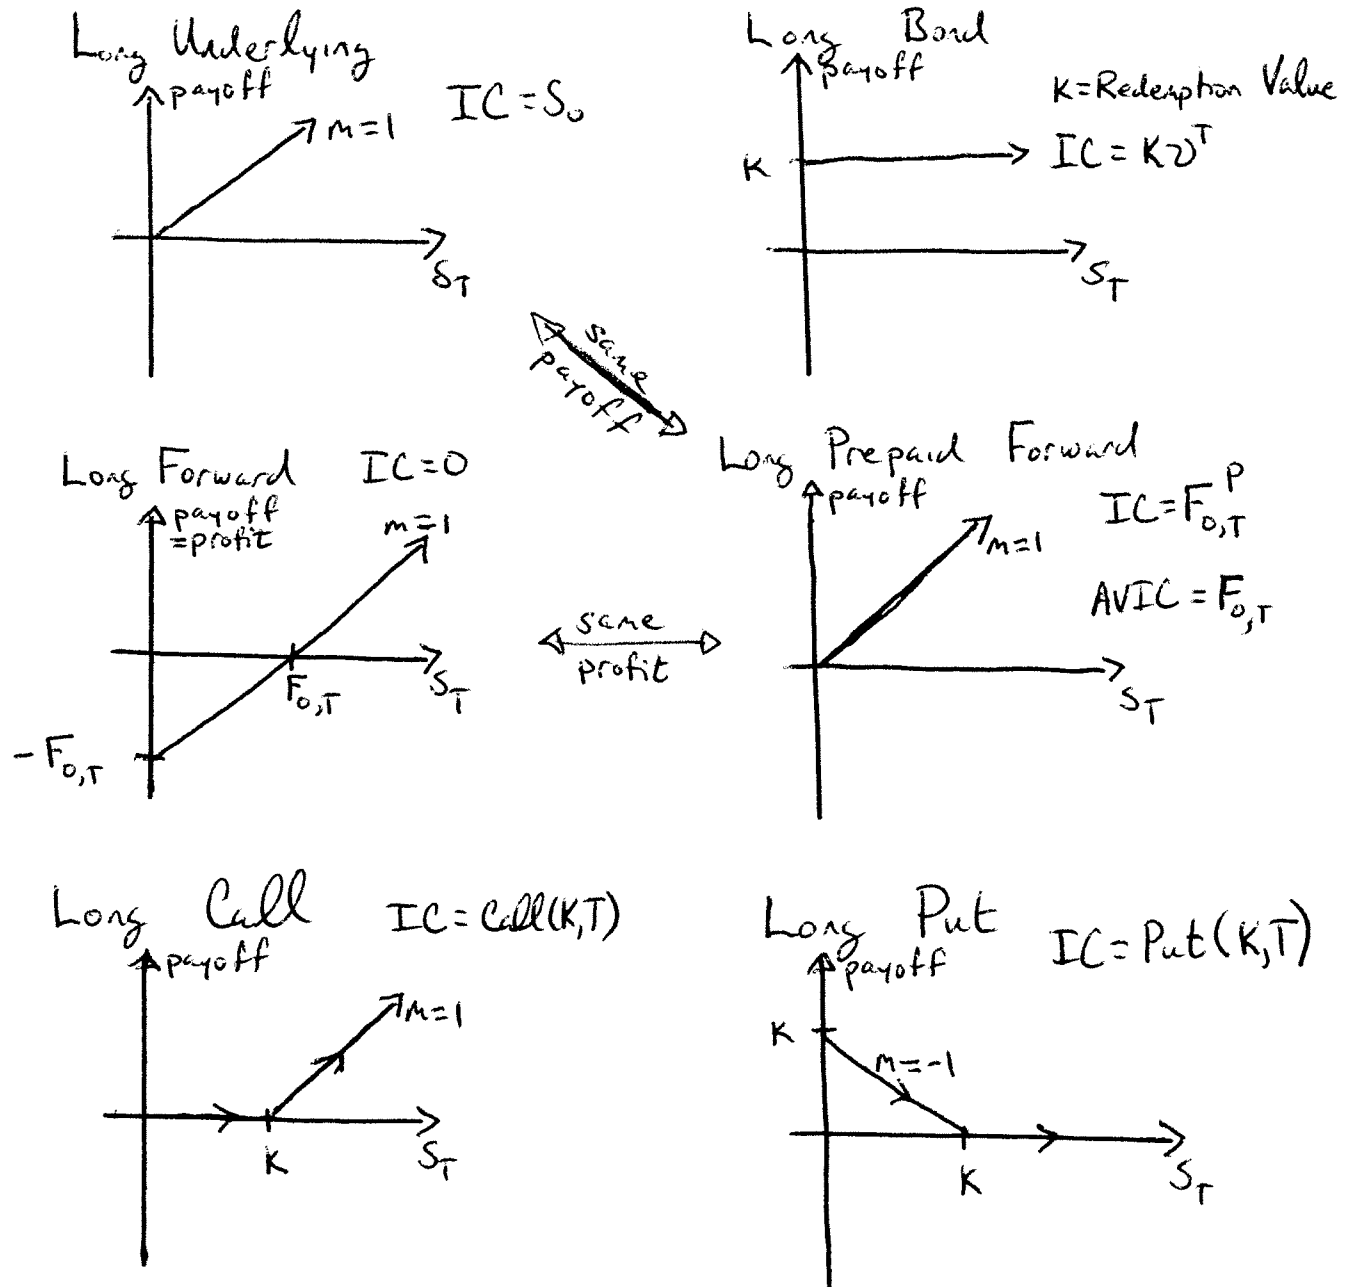 Long Underlying
payoff
m=1
IC = S₀
S_T
Long Bond
payoff
K=Redemption Value
IC = Kv^T
K
S_T
same
payoff
Long Forward IC=0
payoff
=profit
m=1
F_{0,T}
S_T
-F_{0,T}
same
profit
Long Prepaid Forward
payoff
m=1
IC=F^P_{0,T}
AVIC = F_{0,T}
S_T
Long Call IC = Call(K,T)
payoff
m=1
K
S_T
Long Put IC = Put(K,T)
payoff
K
m=-1
K
S_T